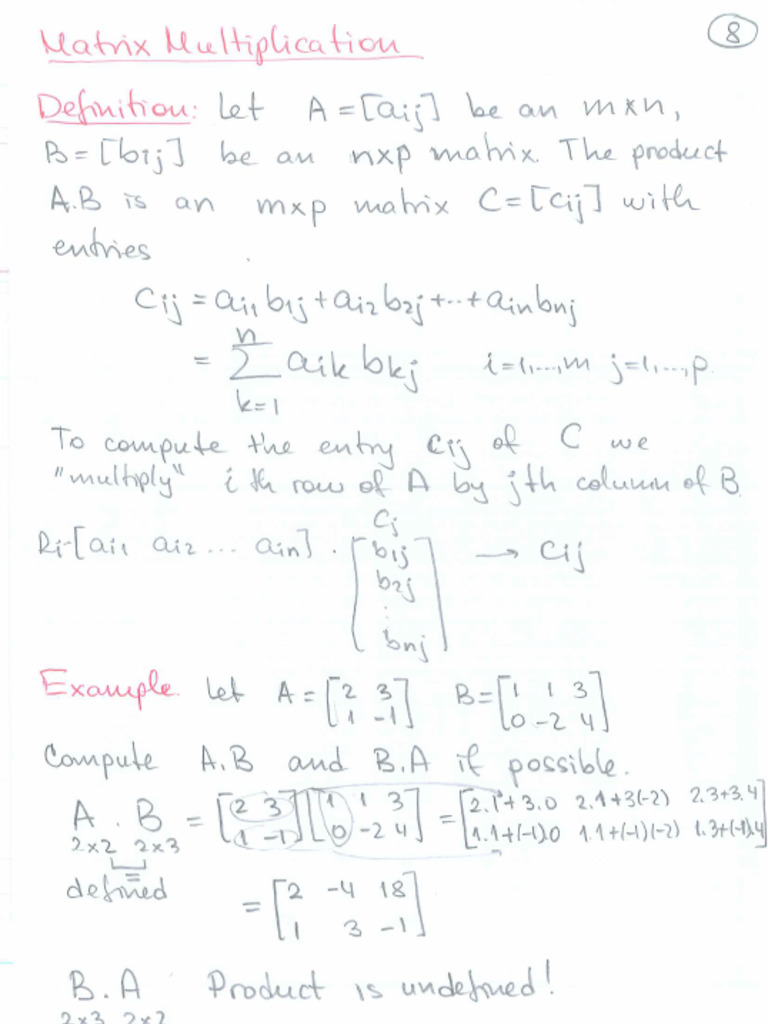 Matrix Multiplication
8
Definition: Let A = [aij] be an m×n,
B = [bij] be an n×p matrix. The product
A.B is an m×p matrix C = [cij] with
entries
cij = ai1 b1j + ai2 b2j + ... + ain bnj
= n Σ k=1 aik bkj i=1,...,m j=1,...,p.
To compute the entry cij of C we
"multiply" i th row of A by jth column of B.
cj
Ri-[ai1 ai2 ... ain] . [b1j b2j : bnj] → cij
Example. Let A = [2 3
1 -1] B = [1 1 3
0 -2 4]
Compute A.B and B.A if possible.
A . B = [2 3
1 -1] [1 1 3
0 -2 4] = [2.1+3.0 2.1+3(-2) 2.3+3.4
1.1+(-1).0 1.1+(-1)(-2) 1.3+(-1).4]
2×2 2×3
=
defined = [2 -4 18
1 3 -1]
B.A Product is undefined!
2×3 2×2